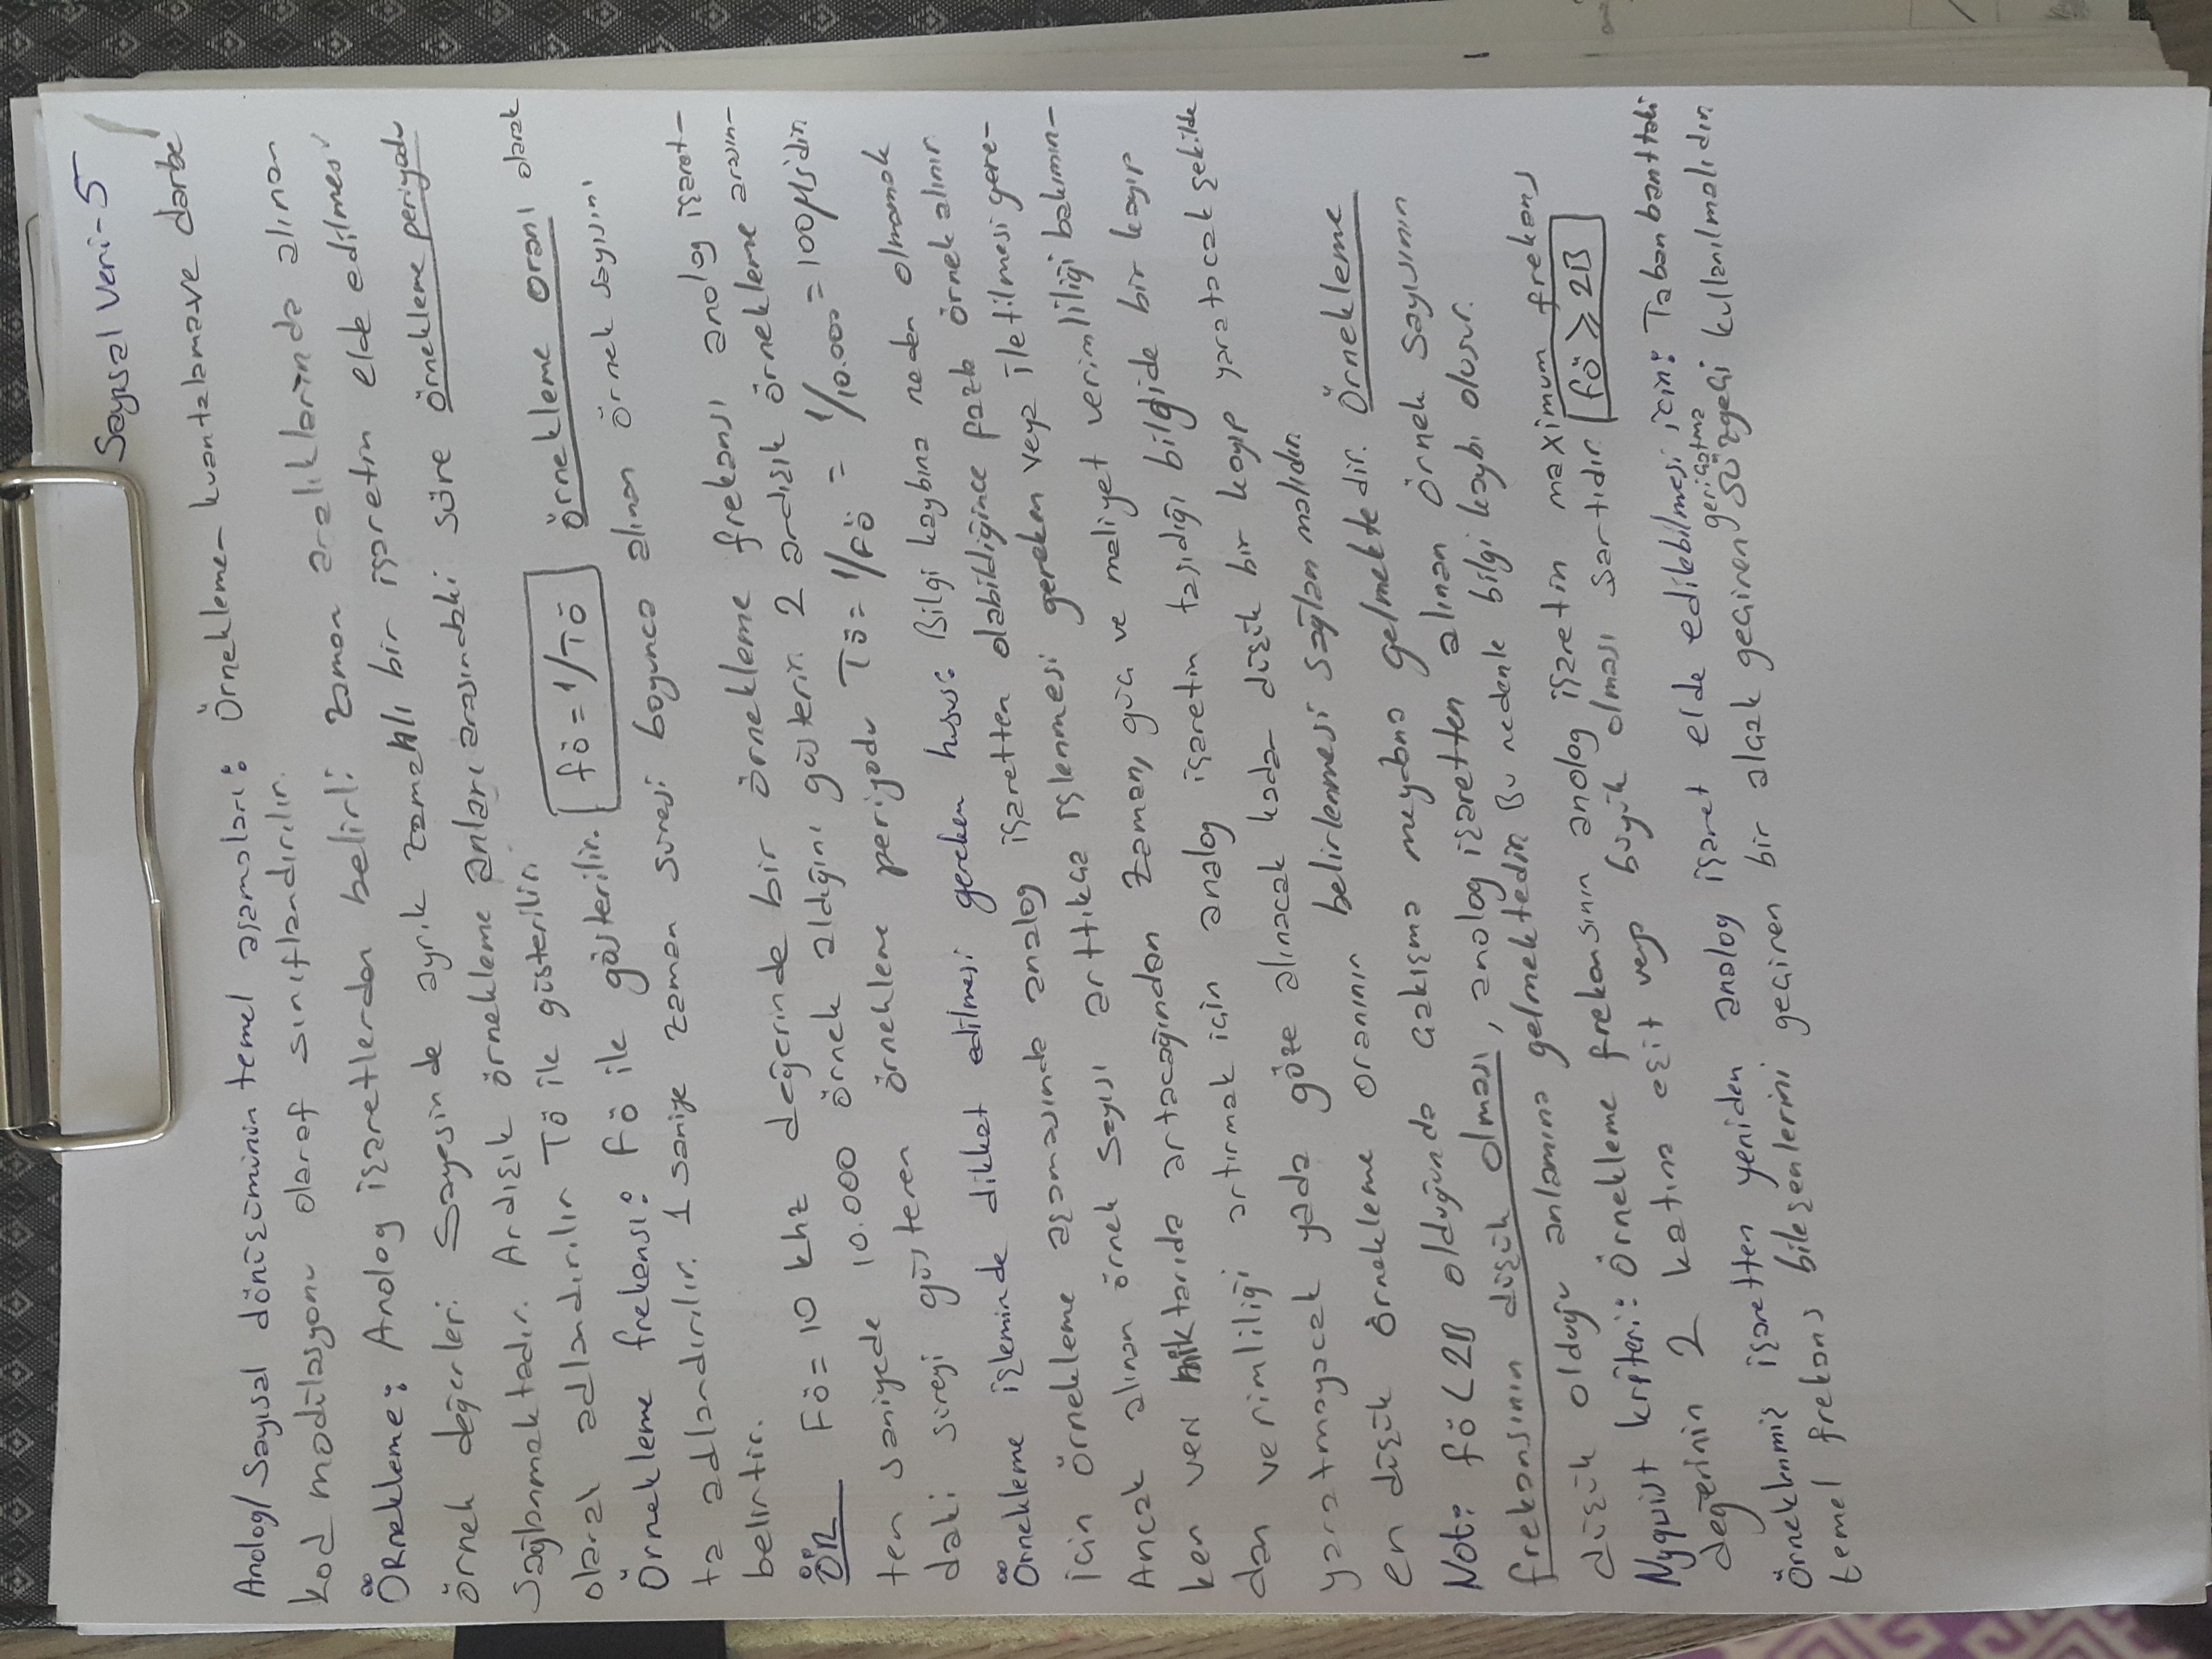 Sayısal Veri-5
Anolog/Sayısal dönüşüminin temel aşamaları: Örnekleme- kuantalama ve darbe
kod modülasyonu olaraf sınıflandırılır.
ÖRnekleme: Anolog işaretlerden belirli zaman aralıklarında alınan
örnek değerleri sayesinde ayrık zamanlı bir işaretin elde edilmesi
sağlanmaktadır. Ardışık örnekleme anları arasındaki süre örnekleme periyodu
olarak adlandırılır Tö ile gösterilir.
Örnekleme frekansı: Fö ile gösterilir. fö = 1/Tö örnekleme oranı olarak
ta adlandırılır. 1 saniye zaman süresi boyunca alınan örnek sayısını
belirtir.
ÖR Fö = 10 khz değerinde bir örnekleme frekansı anolog işaret-
ten saniyede 10.000 örnek aldığını gösterir. 2 ardışık örnekleme arasın-
daki süreyi gösteren örnekleme periyodu Tö = 1/Fö = 1/10.000 = 100 μs'dir
Örnekleme işleminde dikkat edilmesi gereken husus: Bilgi kaybına neden olmamak
için örnekleme aşamasında analog işaretten olabildiğince fazla örnek alınır.
Ancak alınan örnek sayısı arttıkça işlenmesi gereken veya iletilmesi gere-
ken veri miktarıda artacağından zaman, güç ve maliyet verimliliği bakımın-
dan verimliliği artırmak için analog işaretin taşıdığı bilgide bir kayıp
yaratmayacak yada göze alınacak kadar düşük bir kayıp yaratacak şekilde
en düşük örnekleme oranının belirlenmesi sağlanmalıdır.
Not: fö < 2B olduğunda çakışma meydana gelmektedir. Örnekleme
frekansının düşük olması, anolog işaretten alınan örnek sayısının
düşük olduğu anlamına gelmektedir. Bu nedenle bilgi kaybı oluşur.
Nyquist kriteri: Örnekleme frekansının anolog işaretin maximum frekans
değerinin 2 katına eşit veya büyük olması şartıdır. fö ≥ 2B
Örneklenmiş işaretten yeniden analog işaret elde edilebilmesi için: Taban banttaki
temel frekans bileşenlerini geçiren bir alçak geçiren geriçatma süzgeci kullanılmalıdır.